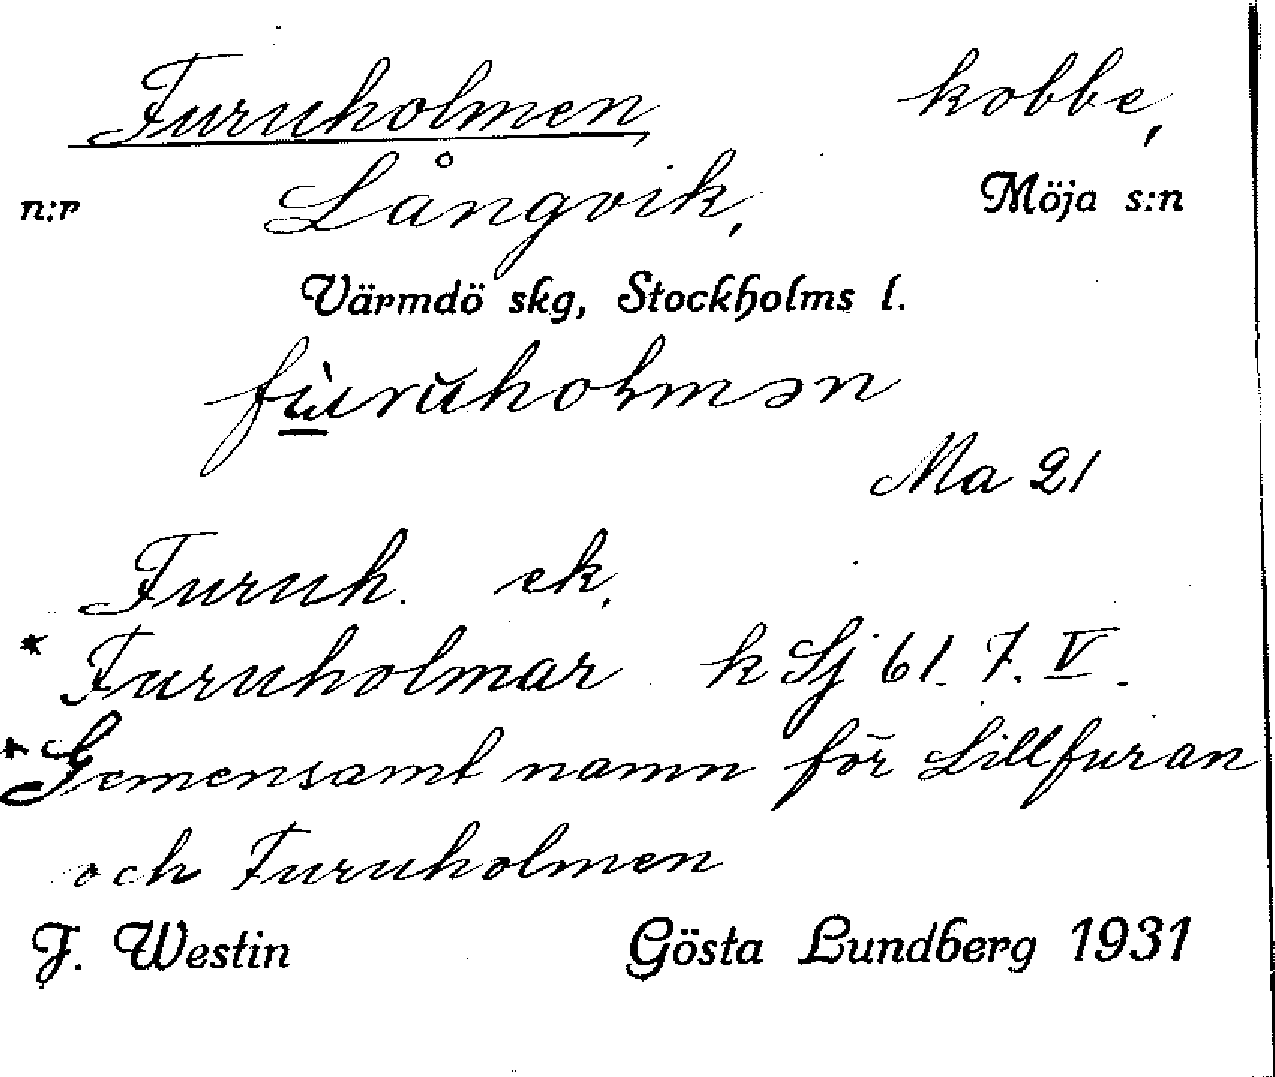 Furuholmen kobbe,
n:r Långvik, Möja s:n
Värmdö skg, Stockholms l.
fù̲ruholmən
Ma 21
Furuh. ek.
* Furuholmar k Sj 61. 7. V.
* Gemensamt namn för Lillfuran
och Furuholmen
F. Westin Gösta Lundberg 1931